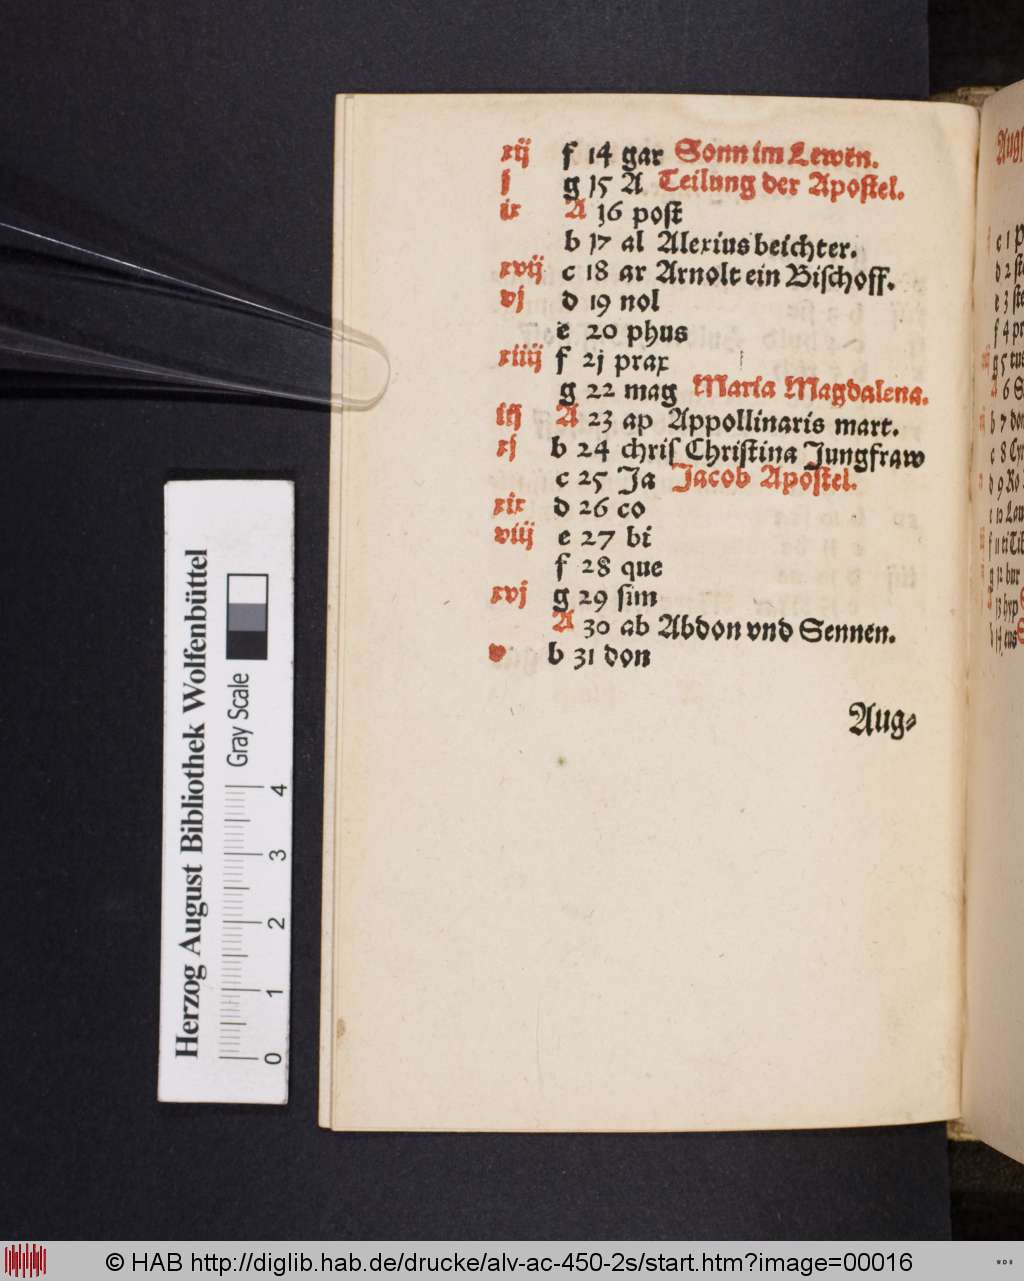 xij f 14 gar Sonn im Lewen.
j g 15 A Teilung der Apostel.
ix A 16 post
b 17 al Alexius beichter.
xvij c 18 ar Arnolt ein Bischoff.
vj d 19 nol
e 20 phus
xiiij f 2j prax
g 22 mag Maria Magdalena.
iij A 23 ap Appollinaris mart.
xj b 24 chris Christina Jungfraw
c 25 Ja Jacob Apostel.
xix d 26 co
viij e 27 bi
f 28 que
xvj g 29 sim
A 30 ab Abdon vnd Sennen.
v b 31 don
Aug⸗
Herzog August Bibliothek Wolfenbüttel
Gray Scale
0 1 2 3 4
© HAB http://diglib.hab.de/drucke/alv-ac-450-2s/start.htm?image=00016